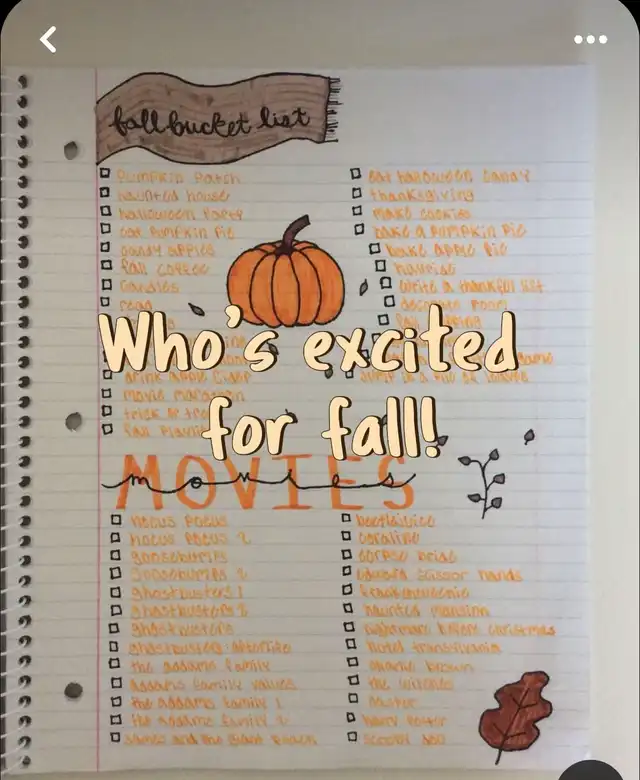 fall bucket list
Pumpkin Patch
haunted house
halloween Party
eat pumpkin pie
candy apples
fall coffee
candles
read
drink apple cider
movie marathon
trick or
fall
eat halloween candy
thanksgiving
make cookies
bake a pumpkin pie
bake apple pie
hayride
write a thankful list
decorate room
Who's excited
for fall!
MOVIES
movies
hocus pocus
hocus pocus 2
goosebumps
goosebumps 2
ghostbusters 1
ghostbusters 2
ghostbusters
ghostbusters: afterlife
the addams family
addams family values
the addams family 1
the addams family 2
james and the giant peach
beetlejuice
coraline
corpse bride
edward scissor hands
frankenweenie
haunted mansion
nightmare before christmas
hotel transylvania
charlie brown
the witches
casper
harry potter
scooby doo